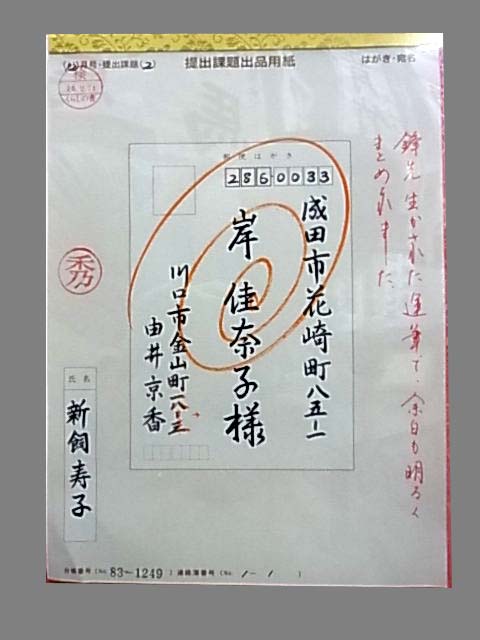 (12)月号・提出課題(2)
提出課題出品用紙
はがき・宛名
検
くらしの書
鋒先生かされた運筆で、余白も明るく
まとめられました。
郵便はがき
2860033
成田市花崎町八五-一
岸 佳奈子様
川口市金山町一八-三
由井京香
秀
氏名
新飼寿子
台帳番号(No.83-1249)連絡簿番号(No. 1-1 )